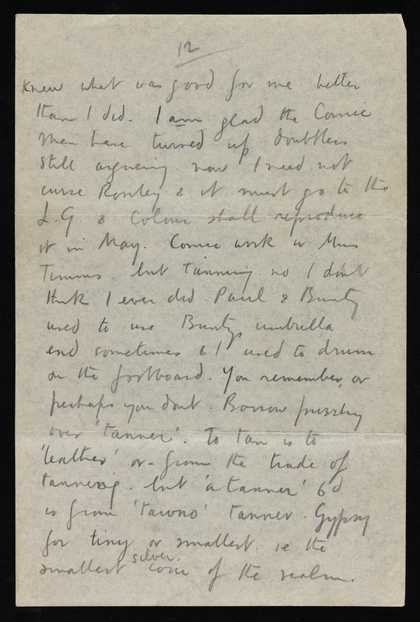 12
knew what was good for me better
than I did. I am glad the Comic
men have turned up doubtless
still argueing now I need not
curse Rowley & it must go to the
L.G & Colour shall reproduce
it in May. Comic work is Miss
Timms. but Tanning no I dont
think I ever did. Paul & Bunty
used to use Buntys umbrella
end sometimes & I used to drum
on the footboard. You remember, or
perhaps you dont. Borrow puzzling
over 'tanner'. To tan is to
'leather' or from the trade of
tanning. but 'a tanner' 6d
is from 'tawno' tanner. Gypsy
for tiny or smallest. ie the
smallest silver coin of the realm.